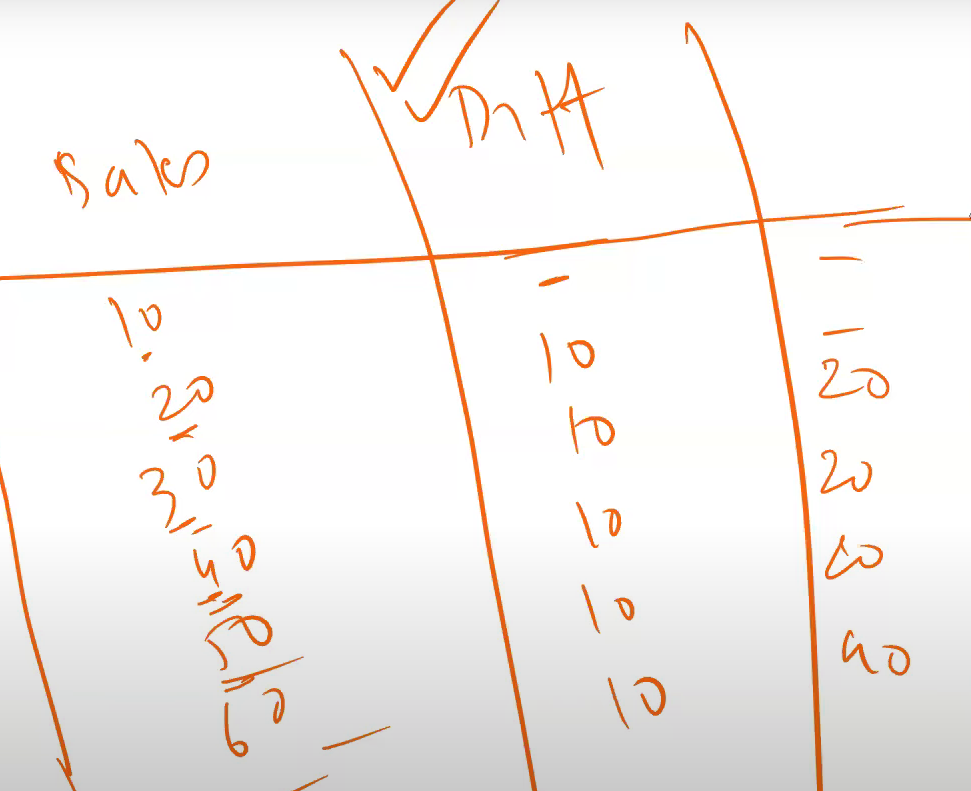 Sales Diff
10 - -
20 10 -
30 10 20
40 10 20
50 10
60 10 40